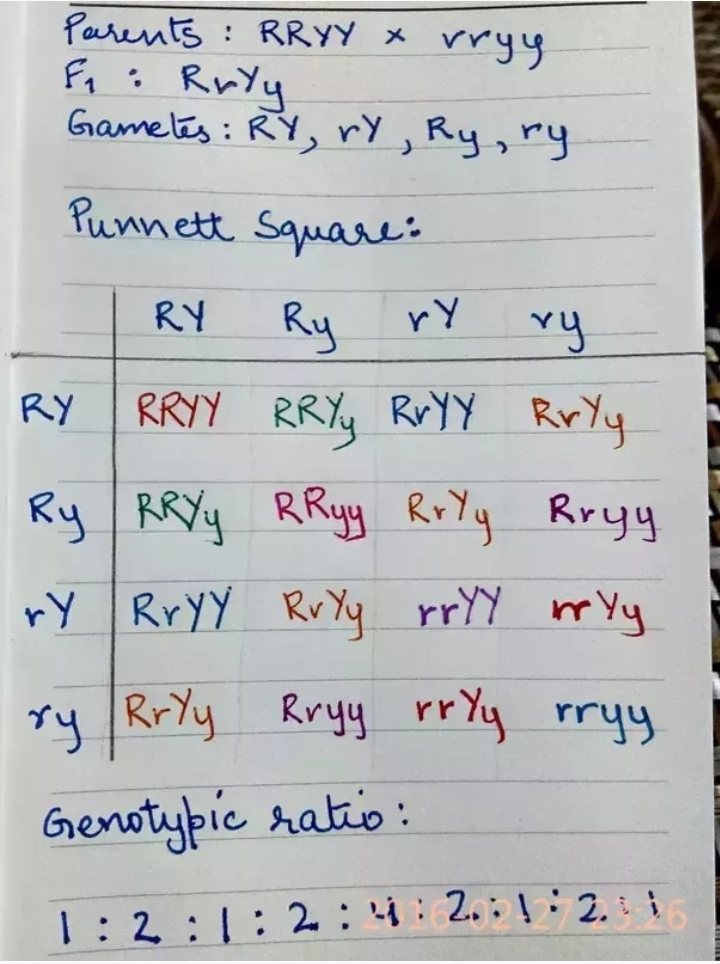 Parents : RRYY × rryy
F1 : RrYy
Gametes : RY, rY, Ry, ry
Punnett Square:
RY Ry rY ry
RY RRYY RRYy RrYY RrYy
Ry RRYy RRyy RrYy Rryy
rY RrYY RrYy rrYY rrYy
ry RrYy Rryy rrYy rryy
Genotypic ratio :
1 : 2 : 1 : 2 : 4 : 2 : 1 : 2 : 1
2016-02-27 23:26